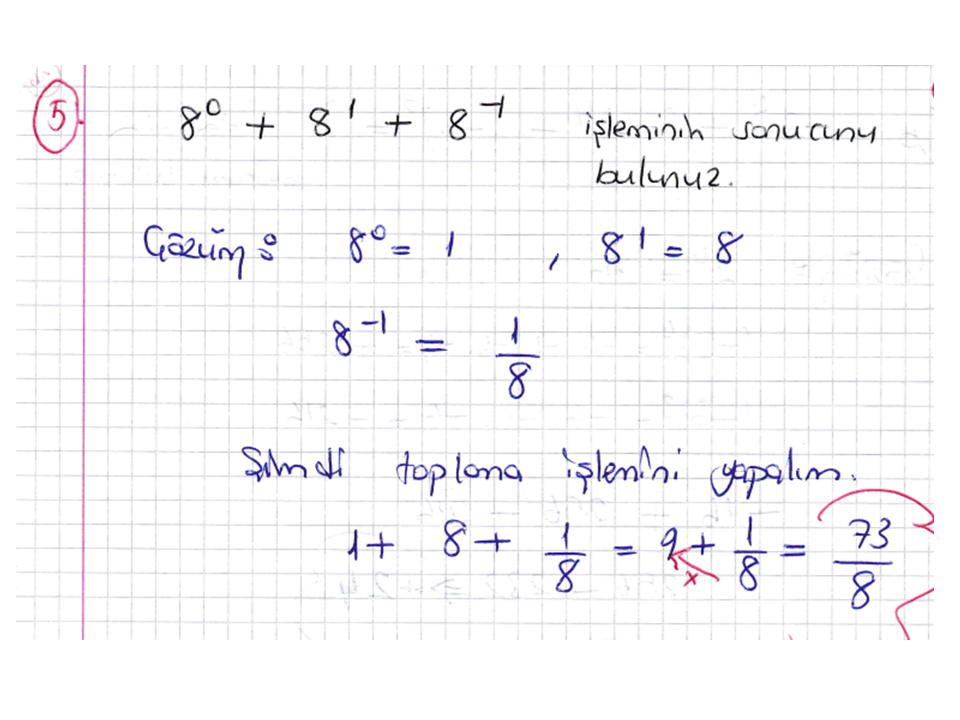 5
8⁰ + 8¹ + 8⁻¹ işleminin sonucunu
bulunuz.
Çözüm: 8⁰ = 1 , 8¹ = 8
8⁻¹ = 1/8
Şimdi toplama işlemini yapalım.
1 + 8 + 1/8 = 9 + 1/8 = 73/8
x